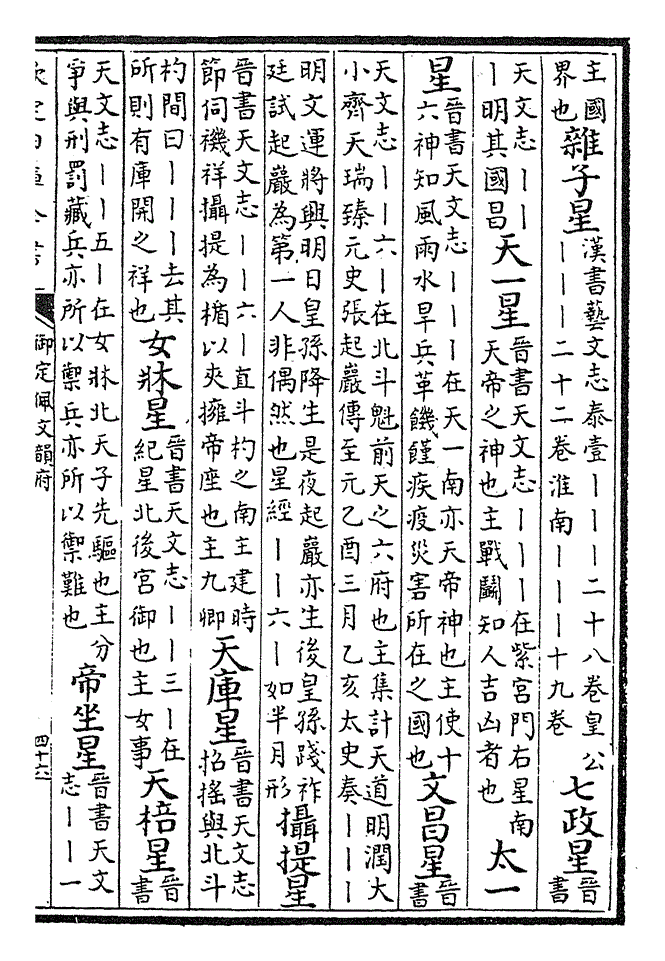 主國界也雜子星漢書藝文志泰壹｜｜｜二十八卷皇公｜｜｜二十二卷淮南｜｜｜十九卷七政星晉書
天文志｜｜｜明其國昌天一星晉書天文志｜｜｜在紫宮門右星南天帝之神也主戰鬭知人吉凶者也太一
星晉書天文志｜｜｜在天一南亦天帝神也主使十六神知風雨水旱兵革饑饉疾疫災害所在之國也文昌星晉書
天文志｜｜六｜在北斗魁前天之六府也主集計天道明潤大小齊天瑞臻元史張起巖傳至元乙酉三月乙亥太史奏｜｜｜
明文運將興明日皇孫降生是夜起巖亦生後皇孫踐祚廷試起巖為第一人非偶然也星經｜｜六｜如半月形攝提星
晉書天文志｜｜六｜直斗杓之南主建時節伺禨祥攝提為楯以夾擁帝座也主九卿天庫星晉書天文志招搖與北斗
杓間曰｜｜｜去其所則有庫開之祥也女牀星晉書天文志｜｜三｜在紀星北後宮御也主女事天棓星晉書
天文志｜｜五｜在女牀北天子先驅也主分爭與刑罰藏兵亦所以禦兵亦所以禦難也帝坐星晉書天文志｜｜一
欽定四庫全書
御定佩文韻府
四十六